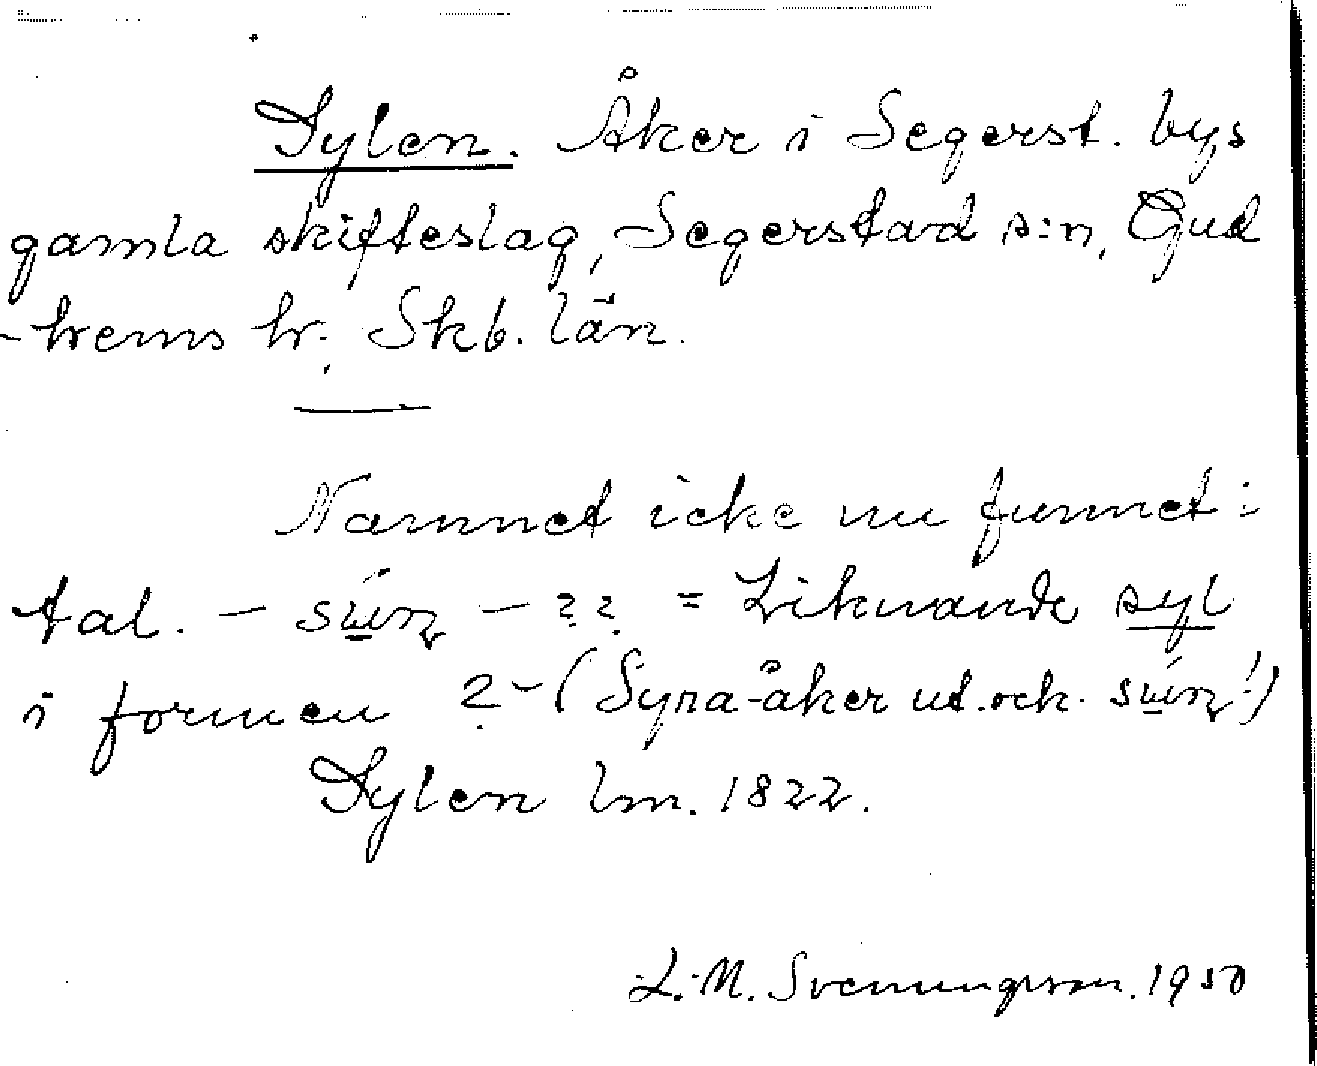 Sylen. Åker i Segerst. bys
gamla skifteslag, Segerstad s:n, Gud
-hems hr. Skb. län.
Namnet icke nu funnet i
tal. — — ?? = Liknande syl
i formen ? - (Syra-åker ut. ock. !)
Sylen lm. 1822.
L. M. Svenungsson. 1950